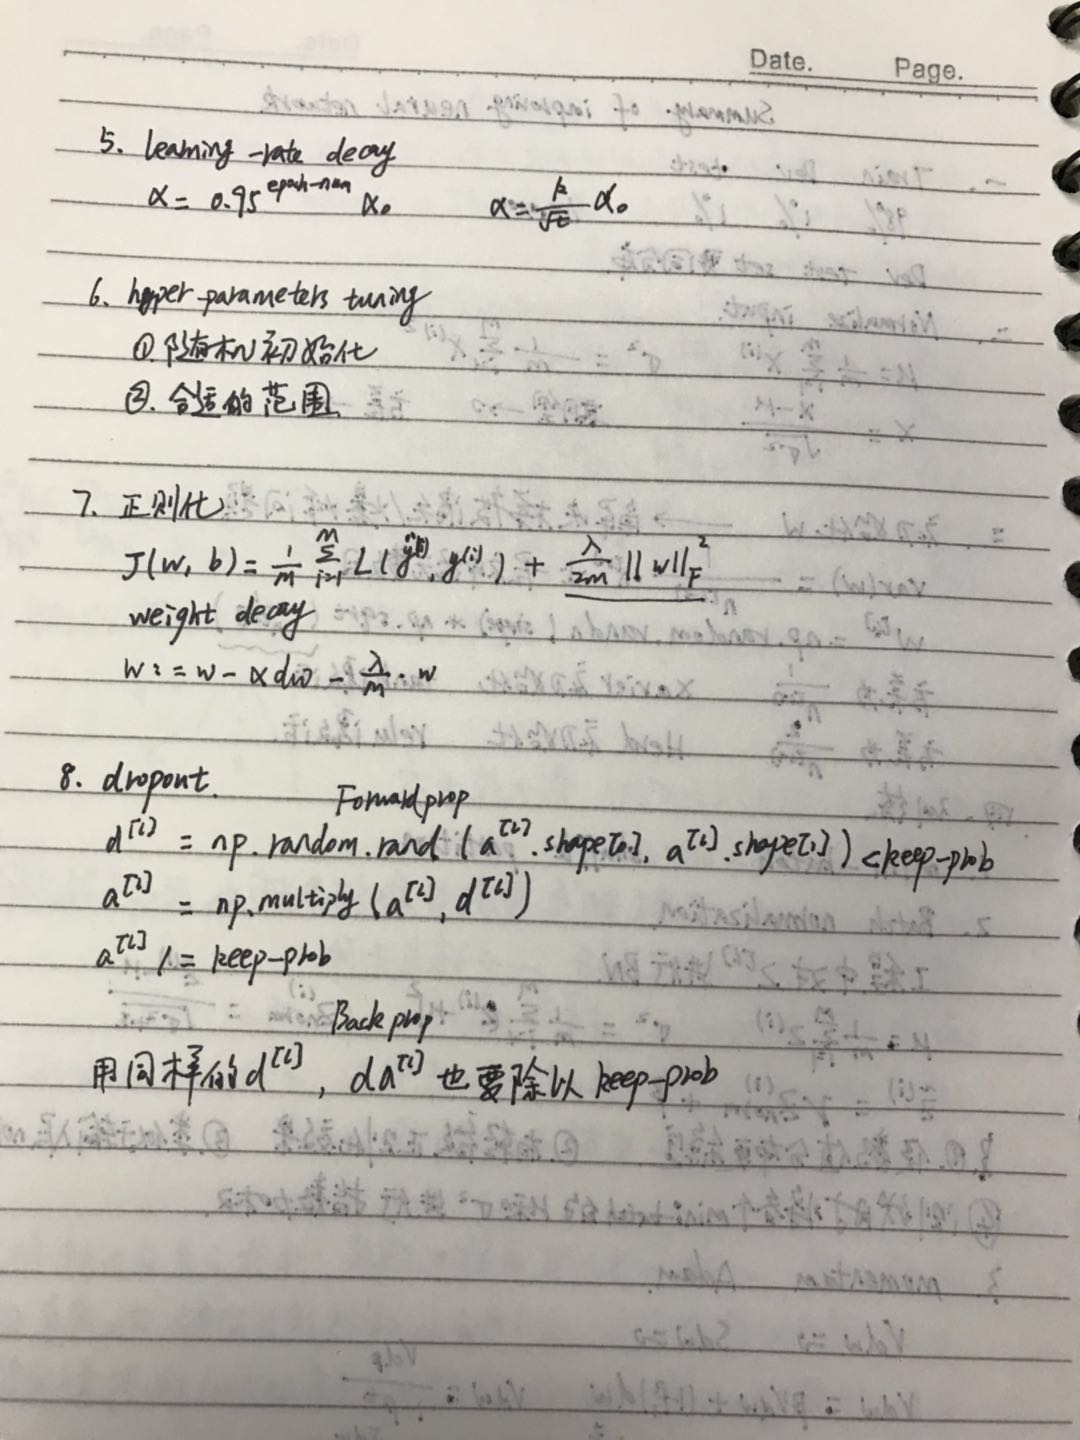 Date.    Page.
5. learning-rate decay
α = 0.95^{epoch-num} α₀    α = k/√t α₀
6. hyper-parameters tuning
①. 随机初始化
②. 合适的范围
7. 正则化
J(w, b) = 1/m Σ_{i=1}^{m} L(ŷ^{(i)}, y^{(i)}) + λ/2m ||w||_F^2
weight decay
w := w - αdw - λ/m · w
8. dropout.
Forward prop
d^{[l]} = np.random.rand(a^{[l]}.shape[0], a^{[l]}.shape[1]) < keep-prob
a^{[l]} = np.multiply(a^{[l]}, d^{[l]})
a^{[l]} /= keep-prob
Back prop
用同样的d^{[l]}, da^{[l]} 也要除以 keep-prob